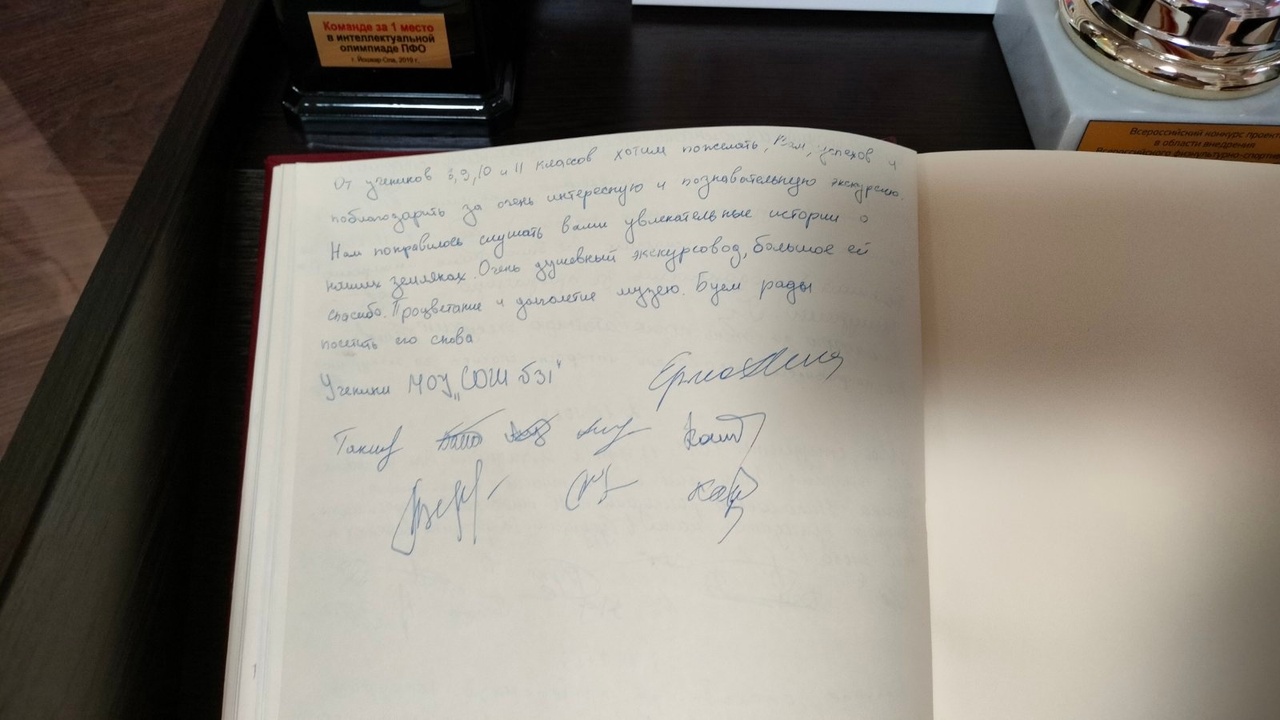 Команде за 1 место
в интеллектуальной
олимпиаде ПФО
г. Йошкар-Ола, 2019 г.
Всероссийский конкурс проект
в области внедрения
Всероссийского физкультурно-спорти
От учеников 8,9,10 и 11 классов хотим пожелать, Вам, успехов и
поблагодарить за очень интересную и познавательную экскурсию.
Нам понравилось слушать вами увлекательные истории о
наших земляках. Очень душевный экскурсовод, большое ей
спасибо. Процветание и долголетие музею. Буем рады
посетить его снова
Ученики МОУ „СОШ №31"